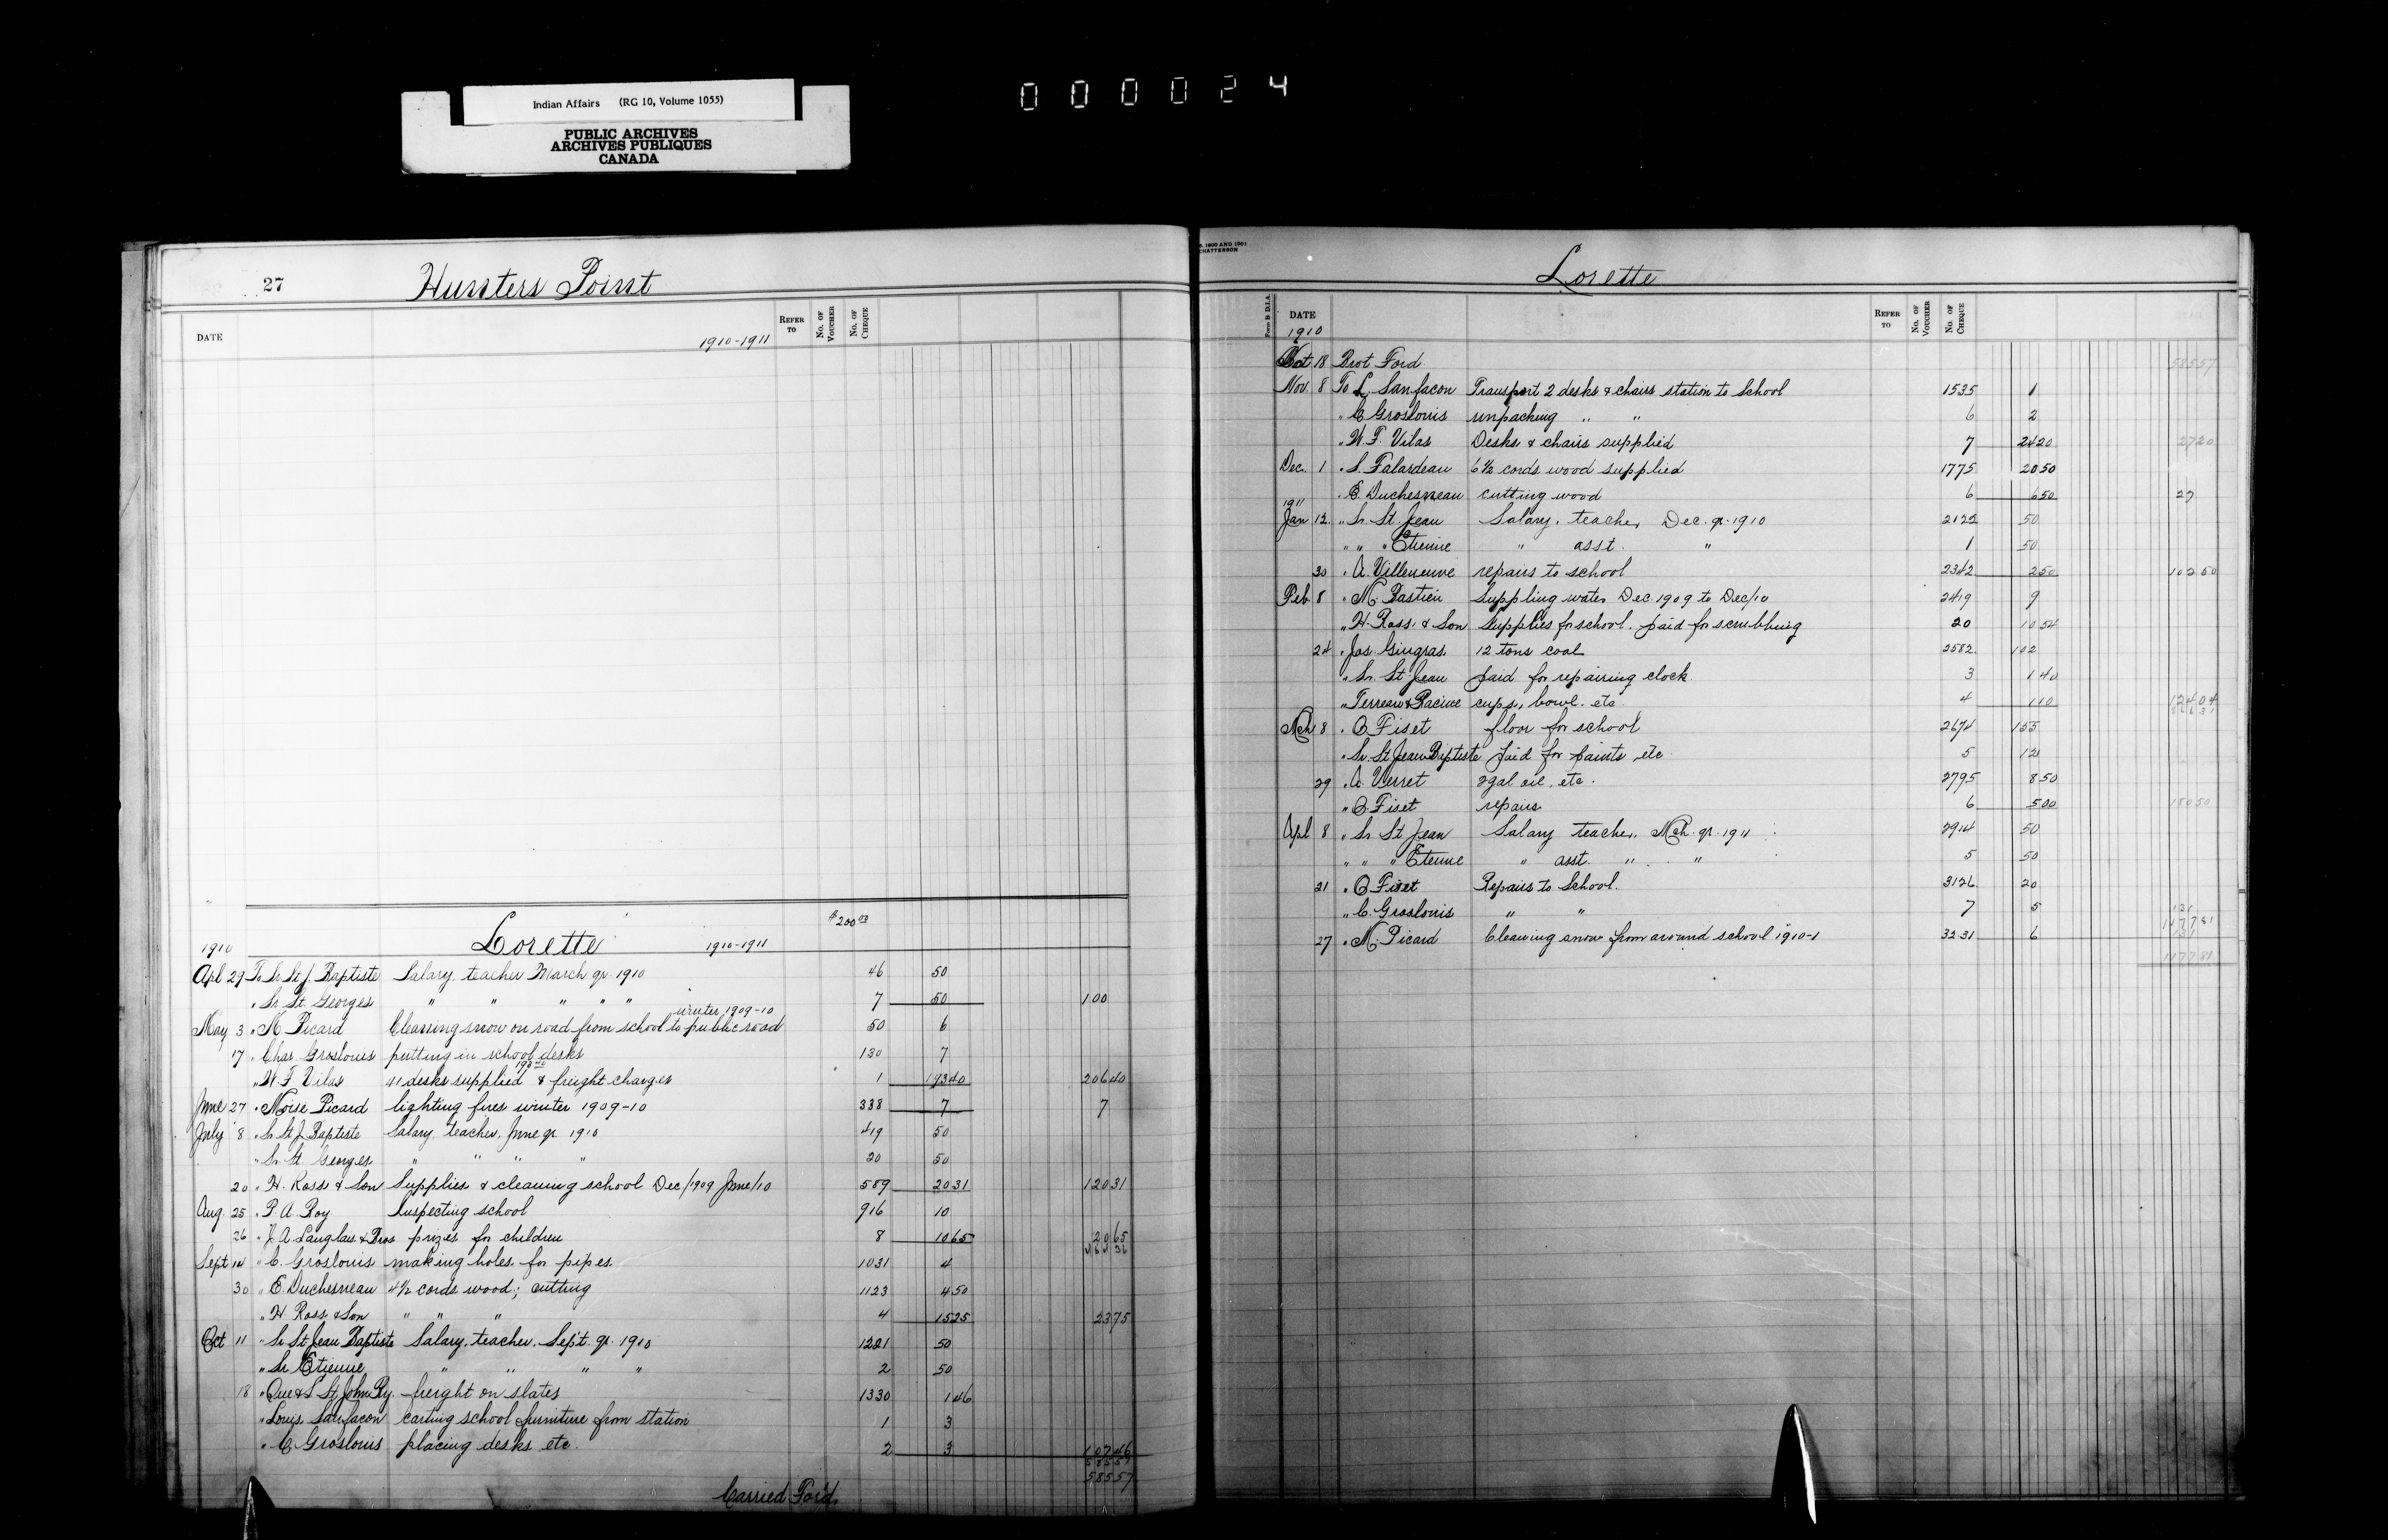 Indian Affairs (RG 10, Volume 1055)
PUBLIC ARCHIVES
ARCHIVES PUBLIQUES
CANADA
000024
27 Hunters Point
DATE REFER TO No. OF VOUCHER No. OF CHEQUE
1910-1911
$200 00
1910 Lorette 1910-1911
Apl 29 To Sr St J. Baptiste Salary, teacher March qr. 1910 46 50
" Sr. St. Georges " " " " " 7 50 100
winter 1909-10
May 3 " M Picard Cleaning snow on road from school to public road 50 6
17 " Chas. Groslouis putting in school desks 130 7
" W F Vilas 41 desks supplied & freight charges 1 19940 20640
June 27 " Moise Picard lighting fires winter 1909-10 338 7 7
July 8 " Sr St J. Baptiste Salary, teacher, June qr. 1910 419 50
" Sr. St. Georges " " " " 20 50
20 " H. Ross & Son Supplies & cleaning school Dec/1909 June/10 589 2031 12031
Aug. 25 " P. A. Roy Inspecting school 916 10
26 " J. A Langlais & Bros prizes for children 8 1065 2065
Sept 14 " C. Groslouis making holes for pipes 1031 4
30 " E. Duchesneau 4½ cords wood; cutting 1123 450
" H Ross & Son " " " 4 1525 2375
Oct 11 " Sr St Jean Baptiste Salary, teacher. Sept. qr. 1910 1221 50
" Sr Etienne " " " " 2 50
18 " Que & L St John Ry. freight on slates 1330 146
" Louis Sanfacon carting school furniture from station 1 3
" C Groslouis placing desks etc. 2 3 10746
58557
58557
Carried Ford.
, 1900 AND 1901
CHATTERSON
Lorette
Form B D.I.A.
DATE REFER TO No. OF VOUCHER No. OF CHEQUE
1910
Oct 18 Brot Ford 58557
Nov 8 To L Sanfacon Transport 2 desks & chairs station to School 1535 1
" C Groslouis unpacking " " 6 2
" W. F. Vilas Desks & chairs supplied 7 2420 2720
Dec. 1 " S. Falardeau 6½ cords wood supplied 1775 2050
" E. Duchesneau cutting wood 6 650 27
1911
Jan 12 " Sr. St. Jean Salary, teacher, Dec. qr. 1910 2122 50
" " " Etienne " asst. " 1 50
30 " A. Villeneuve repairs to school 2342 250 10250
Feb. 8 " M. Bastien Suppling water Dec. 1909 to Dec/10 2419 9
" H. Ross & Son Supplies for school. paid for scrubbing 20 1054
24 " Jos. Gingras 12 tons coal 2582 102
" Sr. St Jean paid for repairing clock 3 140
" Terreau & Racine cups, bowl. etc. 4 110 12404
Mch 8 " C Fiset floor for school 2674 155
" Sr. St Jean Baptiste paid for paints etc 5 12
29 " A. Verret 2 gal oil, etc. 2795 850
" C. Fiset repairs 6 500 18050
Apl 8 " Sr St Jean Salary teacher, Mch. qr. 1911 2914 50
" " " Etienne " asst. " " 5 50
21 " C Fiset Repairs to School. 3126 20
" C. Groslouis " " 7 5
117781
27 " M. Picard Cleaning snow from around school 1910-1 3231 6
117781